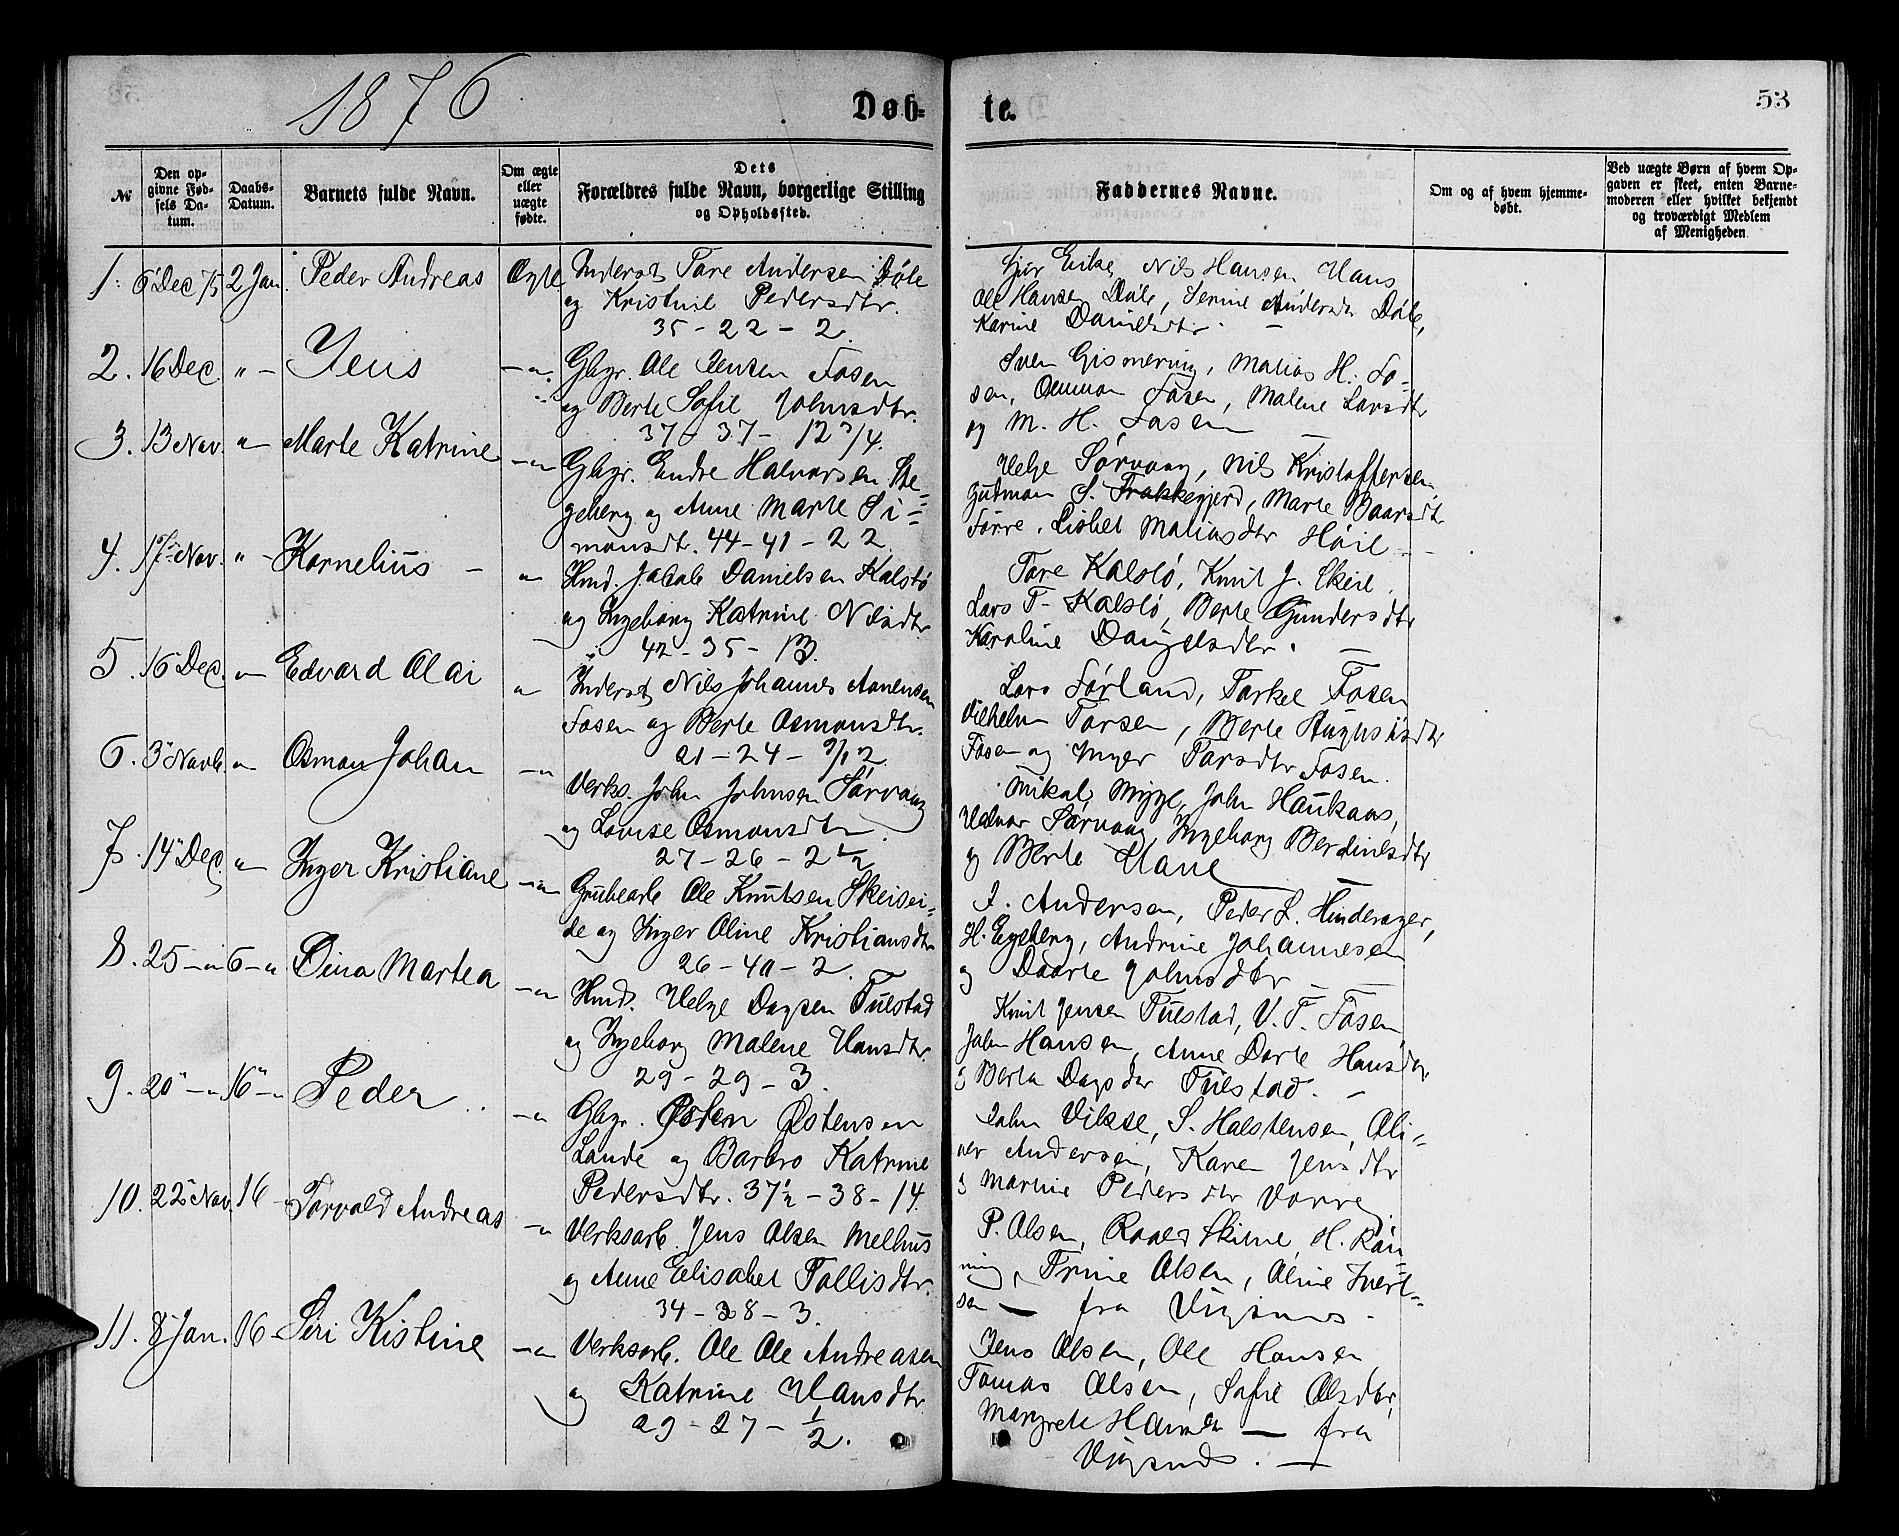 1876
Døb-
te.
53
№
Den op-
givne Fød-
sels Da-
tum.
Daabs-
Datum.
Barnets fulde Navn.
Om ægte
eller
uægte
fødte.
Dets
Forældres fulde Navn, borgerlige Stilling
og Opholdssted.
Faddernes Navne.
Om og af hvem hjemme-
døbt.
Ved uægte Børn af hvem Op-
gaven er skeet, enten Barne-
moderen eller hvilket bekjendt
og troværdigt Medlem
af Menigheden
1. 6 Dec 75 2 Jan. Peder Andreas Ægte Inderst Tore Andersen Døle
og Kristine Pedersdtr.
35-22-2.
Nils Hansen Hans
Ole Hansen Døle, Serine Andersdtr Døle,
Karine Danielsdtr. —
2. 16 Dec. " - Jens -"- Gbgr. Ole Jensen Fosen
og Berte Sofie Johnsdtr.
37-37-12 3/4.
Sven Gismervig, Matias H. Fo-
sen, Osmon Fosen, Malene Larsdtr
og M. H. Fosen —
3. 13 Nov. " Marte Katrine -"- Gbgr. Endre Halvorsen Ste-
geberg og Anne Marte Si-
monsdtr. 44-41-22.
Helge Sørvaag, Nils Kristoffersen
Gudmon S. Frakkegjerd, Marte Baarsdtr
Førre, Lisbet Matiasdtr Høie -
4. 17 Nov. " - Kornelius - " Hmd. Jakob Danielsen Kalstø
og Ingeborg Katrine Nilsdtr
42-35-13.
Tore Kalstø, Knut J. Skeie,
Lars T. Kalstø, Berte Gundersdtr
Karoline Danielsdtr. —
5. 16 Dec. " Edvard Olai " Inderst Nils Johannes Aanensen
Fosen og Berte Osmonsdtr.
21-24-9/12.
Lars Førland, Torkel Fosen
Vilhelm Torsen, Berte
Fosen og Inger Torsdtr Fosen.
6. 3" Novb. " Osmon Johan -" Verks. John Johnsen Sørvaag
og Lovise Osmonsdtr.
27-26-2 1/2
Mikal Mygge, John Haukaas,
Sørvaag, Ingeborg Berdinesdtr
og Berte Hane —
7. 14" Dec. " Inger Kristiane -" Grubearb Ole Knutsen Skeisei-
de og Inger Oline Kristiansdtr
26-40-2.
I. Andersen, Peder L. Hinderager,
H. Egeberg, Andrine Johannesen
og Daarte Johnsdtr —
8. 25 -" 6 -" Dina Martea -" Hmd. Helge Dagsen Tuestad
og Ingeborg Malene Hansdtr.
29-29-3.
Knut Jensen Tuestad, V. T. Fosen
John Hansen, Anne Dorte Hansdtr
& Berta Dagsdtr Tuestad. —
9. 20" -" 16" -" Peder -" Gbgr. Østen Østensen
Lande og Barbro Katrine
Pedersdtr. 37 1/2-38-14.
John Vikse, S. Halstensen, Oli-
ver Andersen, Karen Jensdtr
& Martine Pedersdtr Vorre.
10. 22" Nov. 16 - Torvald Andreas -" Verksarb. Jens Olsen Melhus
og Anne Elisabet Tollisdtr.
34-38-3.
P. Olsen, Roald Skime, H. Røn-
ning, Trine Olsen, Oline Ivert-
sen — fra Vigsnes —
11. 8" Jan. 16 - Siri Kistine -" Verksarb. Ole Ole Andreasen
og Katrine Hansdtr
29-27-1/2.
Jens Olsen, Ole Hansen
Tomas Olsen, Sofie Olsdtr,
Margrete — fra
Vigsnes. —